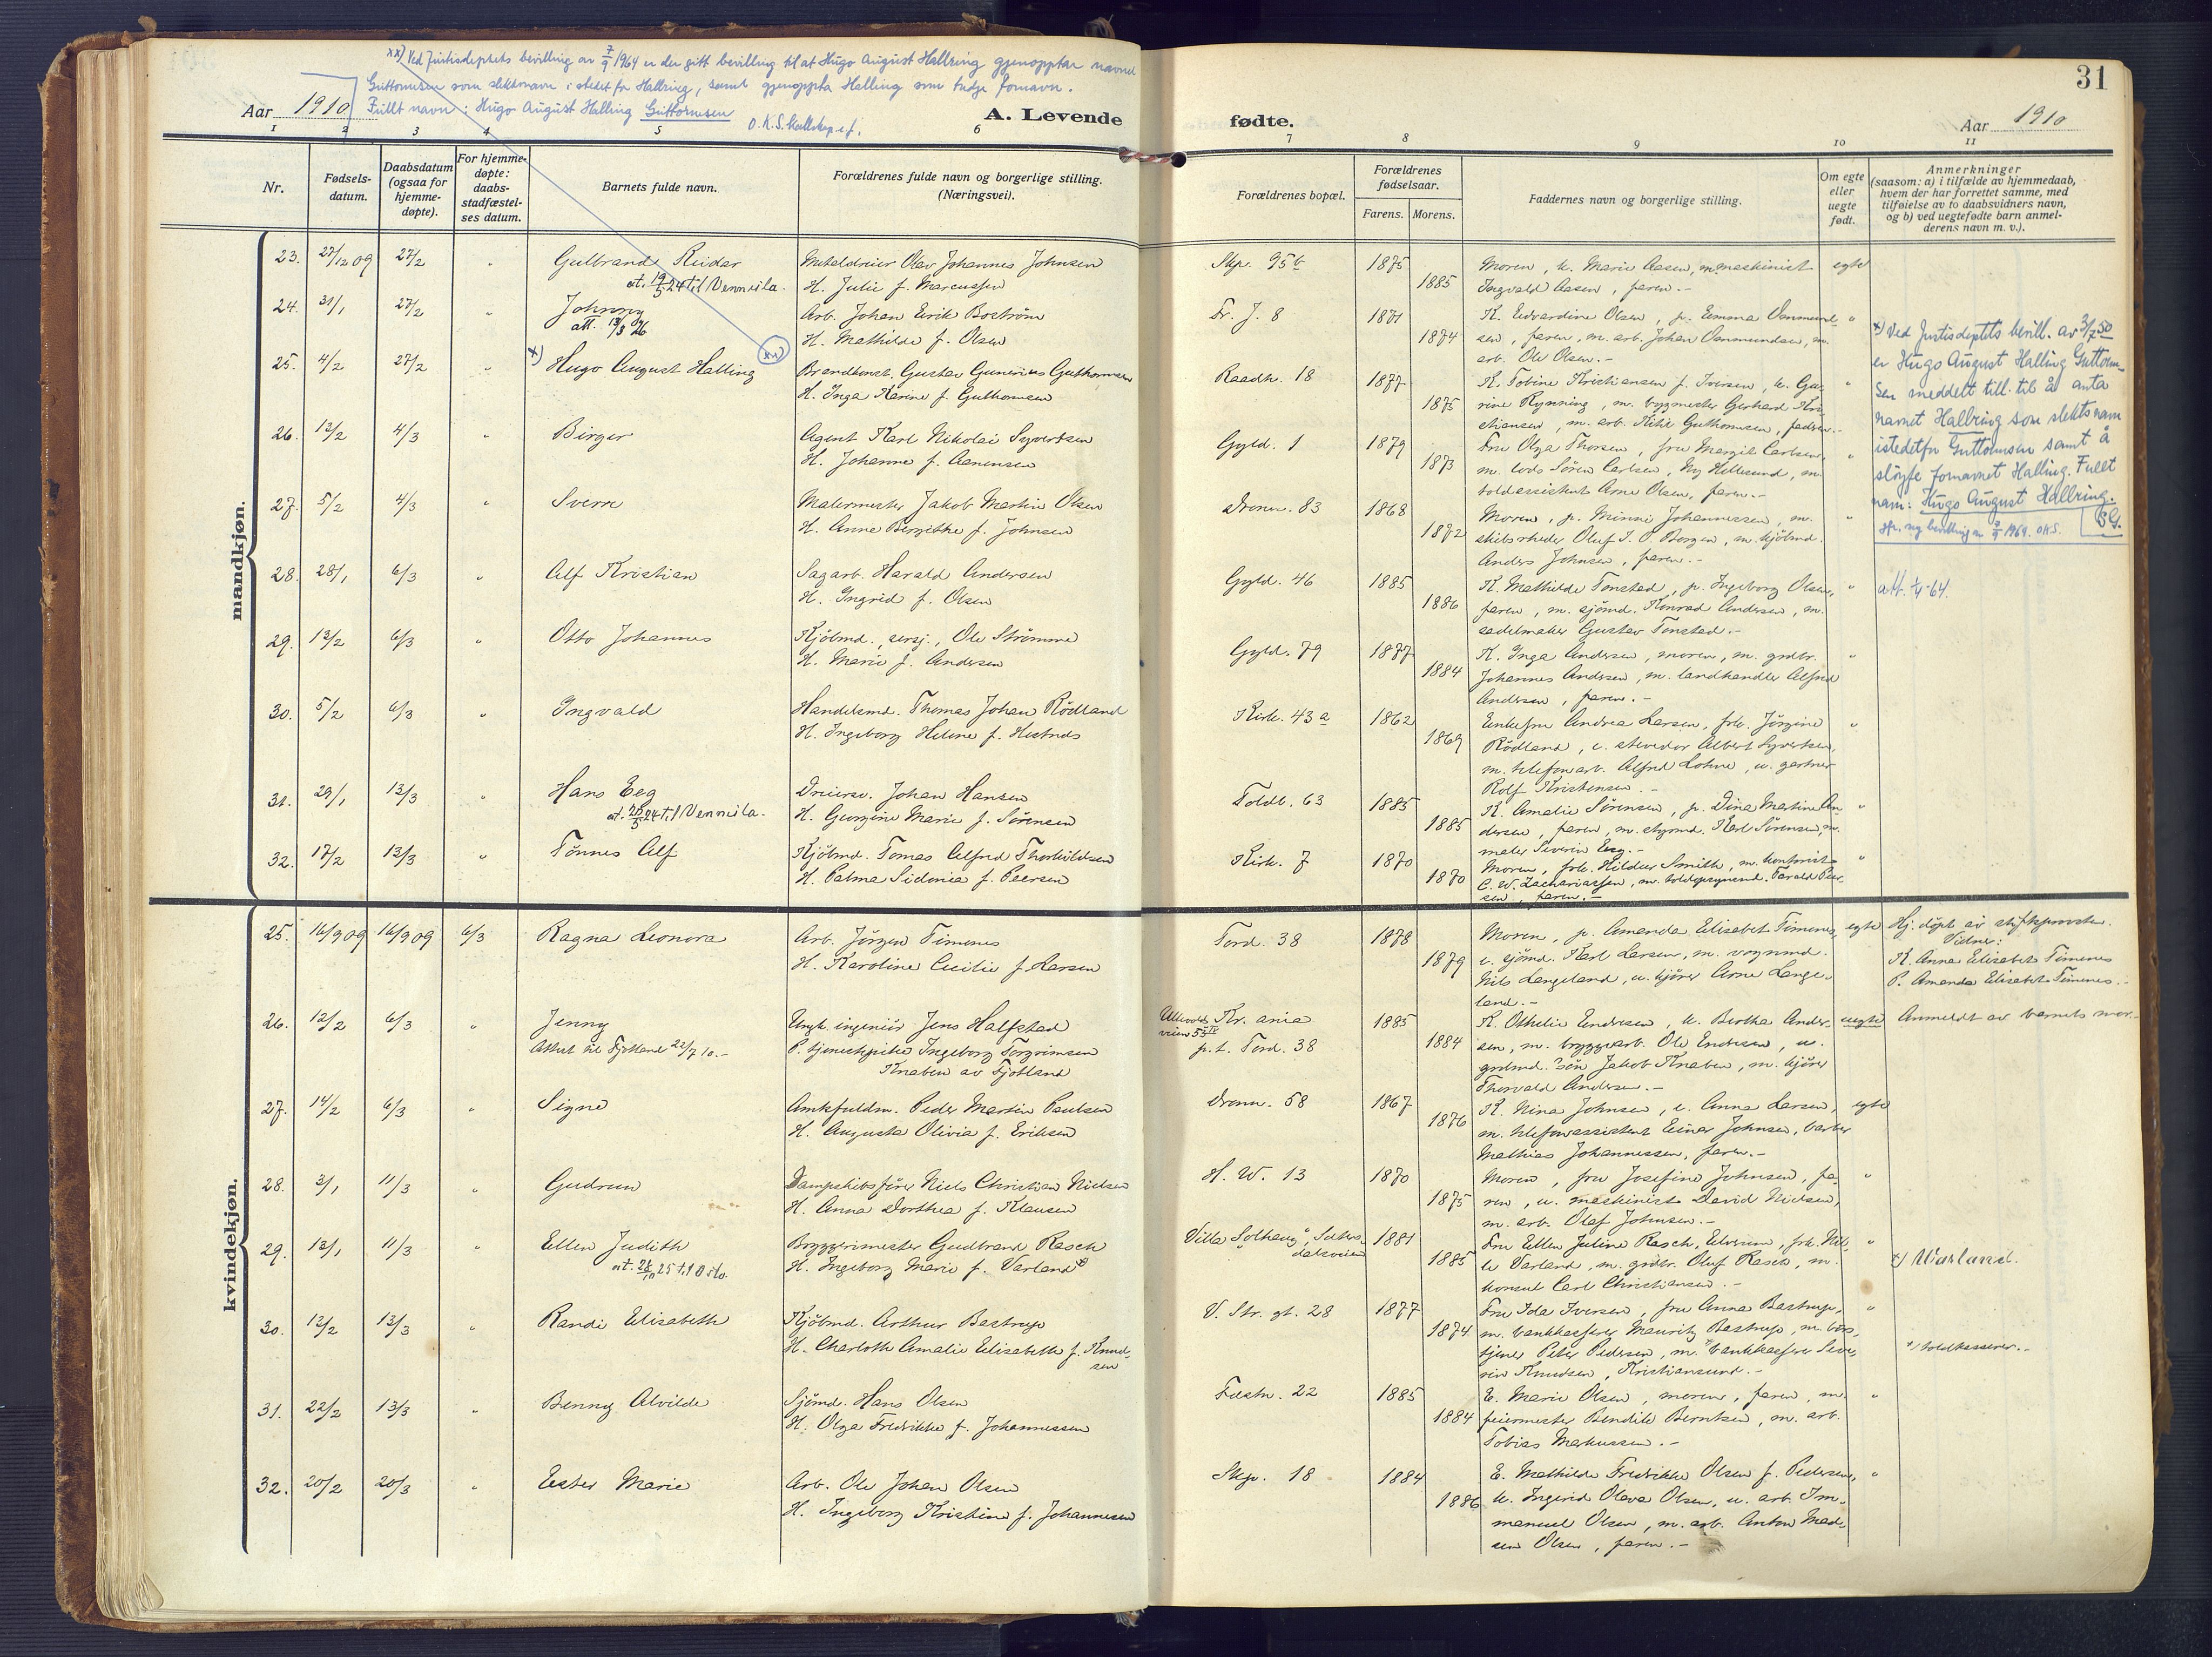 xx) Ved Justisdeptets bevilling av 7/9 1964 er der gitt bevilling til at Hugo August Hallring gjenopptar navnet
Guttormsen som slektsnavn i stedet for Hallring, samt gjenoppta Halling som tredje fornavn.
Fullt navn: Hugo August Halling Guttormsen
31
Aar 1910
A. Levende
fødte.
Aar 1910
1 2 3 4 5 6 7 8 9 10 11
Nr.
Fødsels-
datum.
Daabsdatum
(ogsaa for
hjemme-
døpte).
For hjemme-
døpte:
daabs-
stadfæstel-
ses datum.
Barnets fulde navn.
Forældrenes fulde navn og borgerlige stilling.
(Næringsvei).
Forældrenes bopæl.
Forældrenes
fødselsaar.
Farens. Morens.
Faddernes navn og borgerlige stilling.
Om egte
eller
uegte
født.
Anmerkninger
(saasom: a) i tilfælde av hjemmedaab,
hvem der har forrettet samme, med
tilføielse av to daabsvidners navn,
og b) ved uegtefødte barn anmel-
derens navn m. v.).
mandkjøn.
23. 27/12 09 27/2 " Gulbrand Reidar
at. 19/5 24 til Vennesla.
Metaldreier Olav Johannes Johnsen
H. Julie f. Marcussen
Skp. 95b 1875 1885
Moren, k. Marie Aasen, m. maskinist
Ingvald Aasen, faren.-
egte
24. 31/1 27/2 " Johnny
att. 13/3 26
Arb. Johan Eerik Boström
H. Mathilde f. Olsen
Fr. J. 8 1871 1874
K. Edvardine Olsen, p. Emma Osmund-
sen, faren, m. arb. Johan Osmundsen, m.
arb. Ole Olsen.-
"
25. 4/2 27/2 " x) Hugo August Halling xx)
Brandkonst. Gustav Gunerius Guthormsen
H. Inga Karine f. Guthormsen
Raadh. 18 1877 1875
K. Tobine Kristiansen f. Iversen, k. Gu-
rine Rynning, m. bygmester Gerhard Kri-
stiansen, m. arb. Guthormsen, fadren.-
"
x) Ved Justisdeptets bevill. av 3/7 50
er Hugo August Halling Guttorm-
sen meddelt till. til å anta
navnet Hallring som slektsnavn
istedetfor Guttormsen samt å
sløyfe fornavnet Halling. Fullt
navn: Hugo August Hallring.
jfr. ny bevilling av 7/9 1964. OKS.
26. 13/2 4/3 " Birger
Agent Karl Nikolai Syvertsen
H. Johanne f. Aanensen
Gyld. 1 1879 1873
Fru Olga Thorsen, fru Margit Carlsen,
m. lods Søren Carlsen, Ny Hellesund, m.
toldassistent Arne Olsen, faren.-
"
27. 5/2 4/3 " Sverre
Malermester Jakob Martin Olsen
H. Anne Bergitte f. Johnsen
Dronn. 83 1868 1872
Moren, p. Minni Johannessen, m.
skibsrheder Oluf I. O. Borgen, m. kjöbmd.
Anders Johnsen, faren.-
"
28. 28/1 6/3 " Alf Kristian
Sagarb. Harald Andersen
H. Ingrid f. Olsen
Gyld. 46 1885 1886
K. Mathilde Tonstad, p. Ingeborg Olsen,
faren, m. sjömd. Konrad Andersen, m.
sadelmaker Gustav Tonstad.-
"
29. 13/2 6/3 " Otto Johannes
Kjöbmd., sersj., Ole Strömme
H. Marie f. Andersen
Gyld. 79 1877 1884
K. Inga Andersen, moren, m. grdbr.
Johannes Andersen, m. landhandler Alfred
Andersen, faren.-
"
30. 5/2 6/3 " Ingvald
Handelsmd. Thomas Johan Rödland
H. Ingeborg Helene f. Hestnes
Kirk. 43 a 1862 1869
Enkefru Andrea Larsen, frk. Jörgine
Rödland, e. stevedor Albert Syvertsen,
m. telefonarb. Alfred Lohne, u. gartner
Rolf Kristensen.-
"
31. 29/1 13/3 " Hans Eeg
at. 26/5 24 til Vennesla.
Dreiersv. Johan Hansen
H. Georgine Marie f. Sörensen
Toldb. 63 1885 1885
K. Amalie Sörensen, p. Dina Martine An-
dersen, faren, m. styrmd. Karl Sörensen, m.
maler Severin Eeg.-
"
32. 17/2 13/3 " Tönnes Alf
Kjöbmd. Tomas Alfred Thorkildsen
H. Palma Sidonia f. Peersen
Kirk. 7 1870 1870
Moren, frk. Hildur Smith, m. kontorist
C. W. Zachariassen, m. toldopsynsmd. Farald Peer-
sen, faren.-
"
kvindekjøn.
25. 16/9 09 16/9 09 6/3 Ragna Leonora
Arb. Jörgen Timenes
H. Karoline Cecilie f. Larsen
Tord. 38 1878 1879
Moren, p. Amanda Elisabet Timenes,
e. sjömd. Karl Larsen, m. vognmd.
Nils Langeland, u. kjörer Arne Lange-
land.-
egte
Hj. döpt av stiftsprovsten.
Vidner:
K. Anna Elisabet Timenes
P. Amanda Elisabet Timenes.-
26. 12/2 6/3 " Jenny
Attest til Fjotland 22/7 10.-
Ungk. ingeniör Jens Halfstad
P. tjenestepike Ingeborg Torgrimsen
Knaben av Fjotland
Ullevolds
veien 55 IV
Kr. ania
p.t. Tord. 38 1885 1884
K. Othelie Endresen, k. Bertha Ander-
sen, m. bryggearb. Ole Endresen, u.
grdmd. sön Jakob Knaben, m. kjörer
Thorvald Andersen.-
uegte
Anmeldt av barnets mor.-
27. 14/2 6/3 " Signe
Amtsfuldm. Peder Martin Paulsen
H. Augusta Olivia f. Eriksen
Dronn. 58 1867 1876
K. Nina Johnsen, e. Anna Larsen,
m. telefonassistent Einar Johnsen, barber
Mathias Johannessen, faren.-
egte
28. 3/1 11/3 " Gudrun
Dampskibsförer Niels Christian Nielsen
H. Anna Dorthea f. Klausen
H. W. 13 1870 1875
Moren, fru Josefine Johnsen, fa-
ren, u. maskinist David Nielsen,
m. arb. Olaf Johnsen.-
"
29. 13/1 11/3 " Ellen Judith
at. 28/10 25 til Oslo.
Bryggerimester Gudbrand Rasch
H. Ingeborg Marie f. Varland x)
Villa "Solhaug", Sæters-
dalsveien 1881 1885
Fru Ellen Juline Rasch, Elverum, frk. Nil-
le Varland, m. grdbr. Oluf Rasch, m.
konsul Carl Christiansen.-
"
x) Aarland.
30. 13/2 13/3 " Randi Elisabeth
Kjöbmd. Arthur Bastrup
H. Charloth Amalie Elisabeth f. Knud-
sen
V. Str. gt. 28 1877 1874
Fru Ida Iversen, fru Anna Bastrup,
m. bankkasserer Mauritz Bastrup, m. börs-
tjener Peter Pedersen, m. x) bankkasserer Seve-
rin Knudsen, Kristiansund.-
"
x) toldkasserer.-
31. 22/2 13/3 " Benny Alvilde
Sjömd. Hans Olsen
H. Olga Fredrikke f. Johannessen
Fæstn. 22 1885 1884
E. Marie Olsen, moren, faren, m.
feiermester Bendik Berntsen, m. arb.
Tobias Markussen.-
"
32. 20/2 20/3 " Ester Marie
Arb. Ole Johan Olsen
H. Ingeborg Kristine f. Johannesen
Skp. 18 1884 1886
E. Mathilde Fredrikke Olsen f. Pedersen,
k. Ingerid Olava Olsen, u. arb. Im-
manuel Olsen, m. arb. Anton Mad-
sen Olsen, faren.-
"